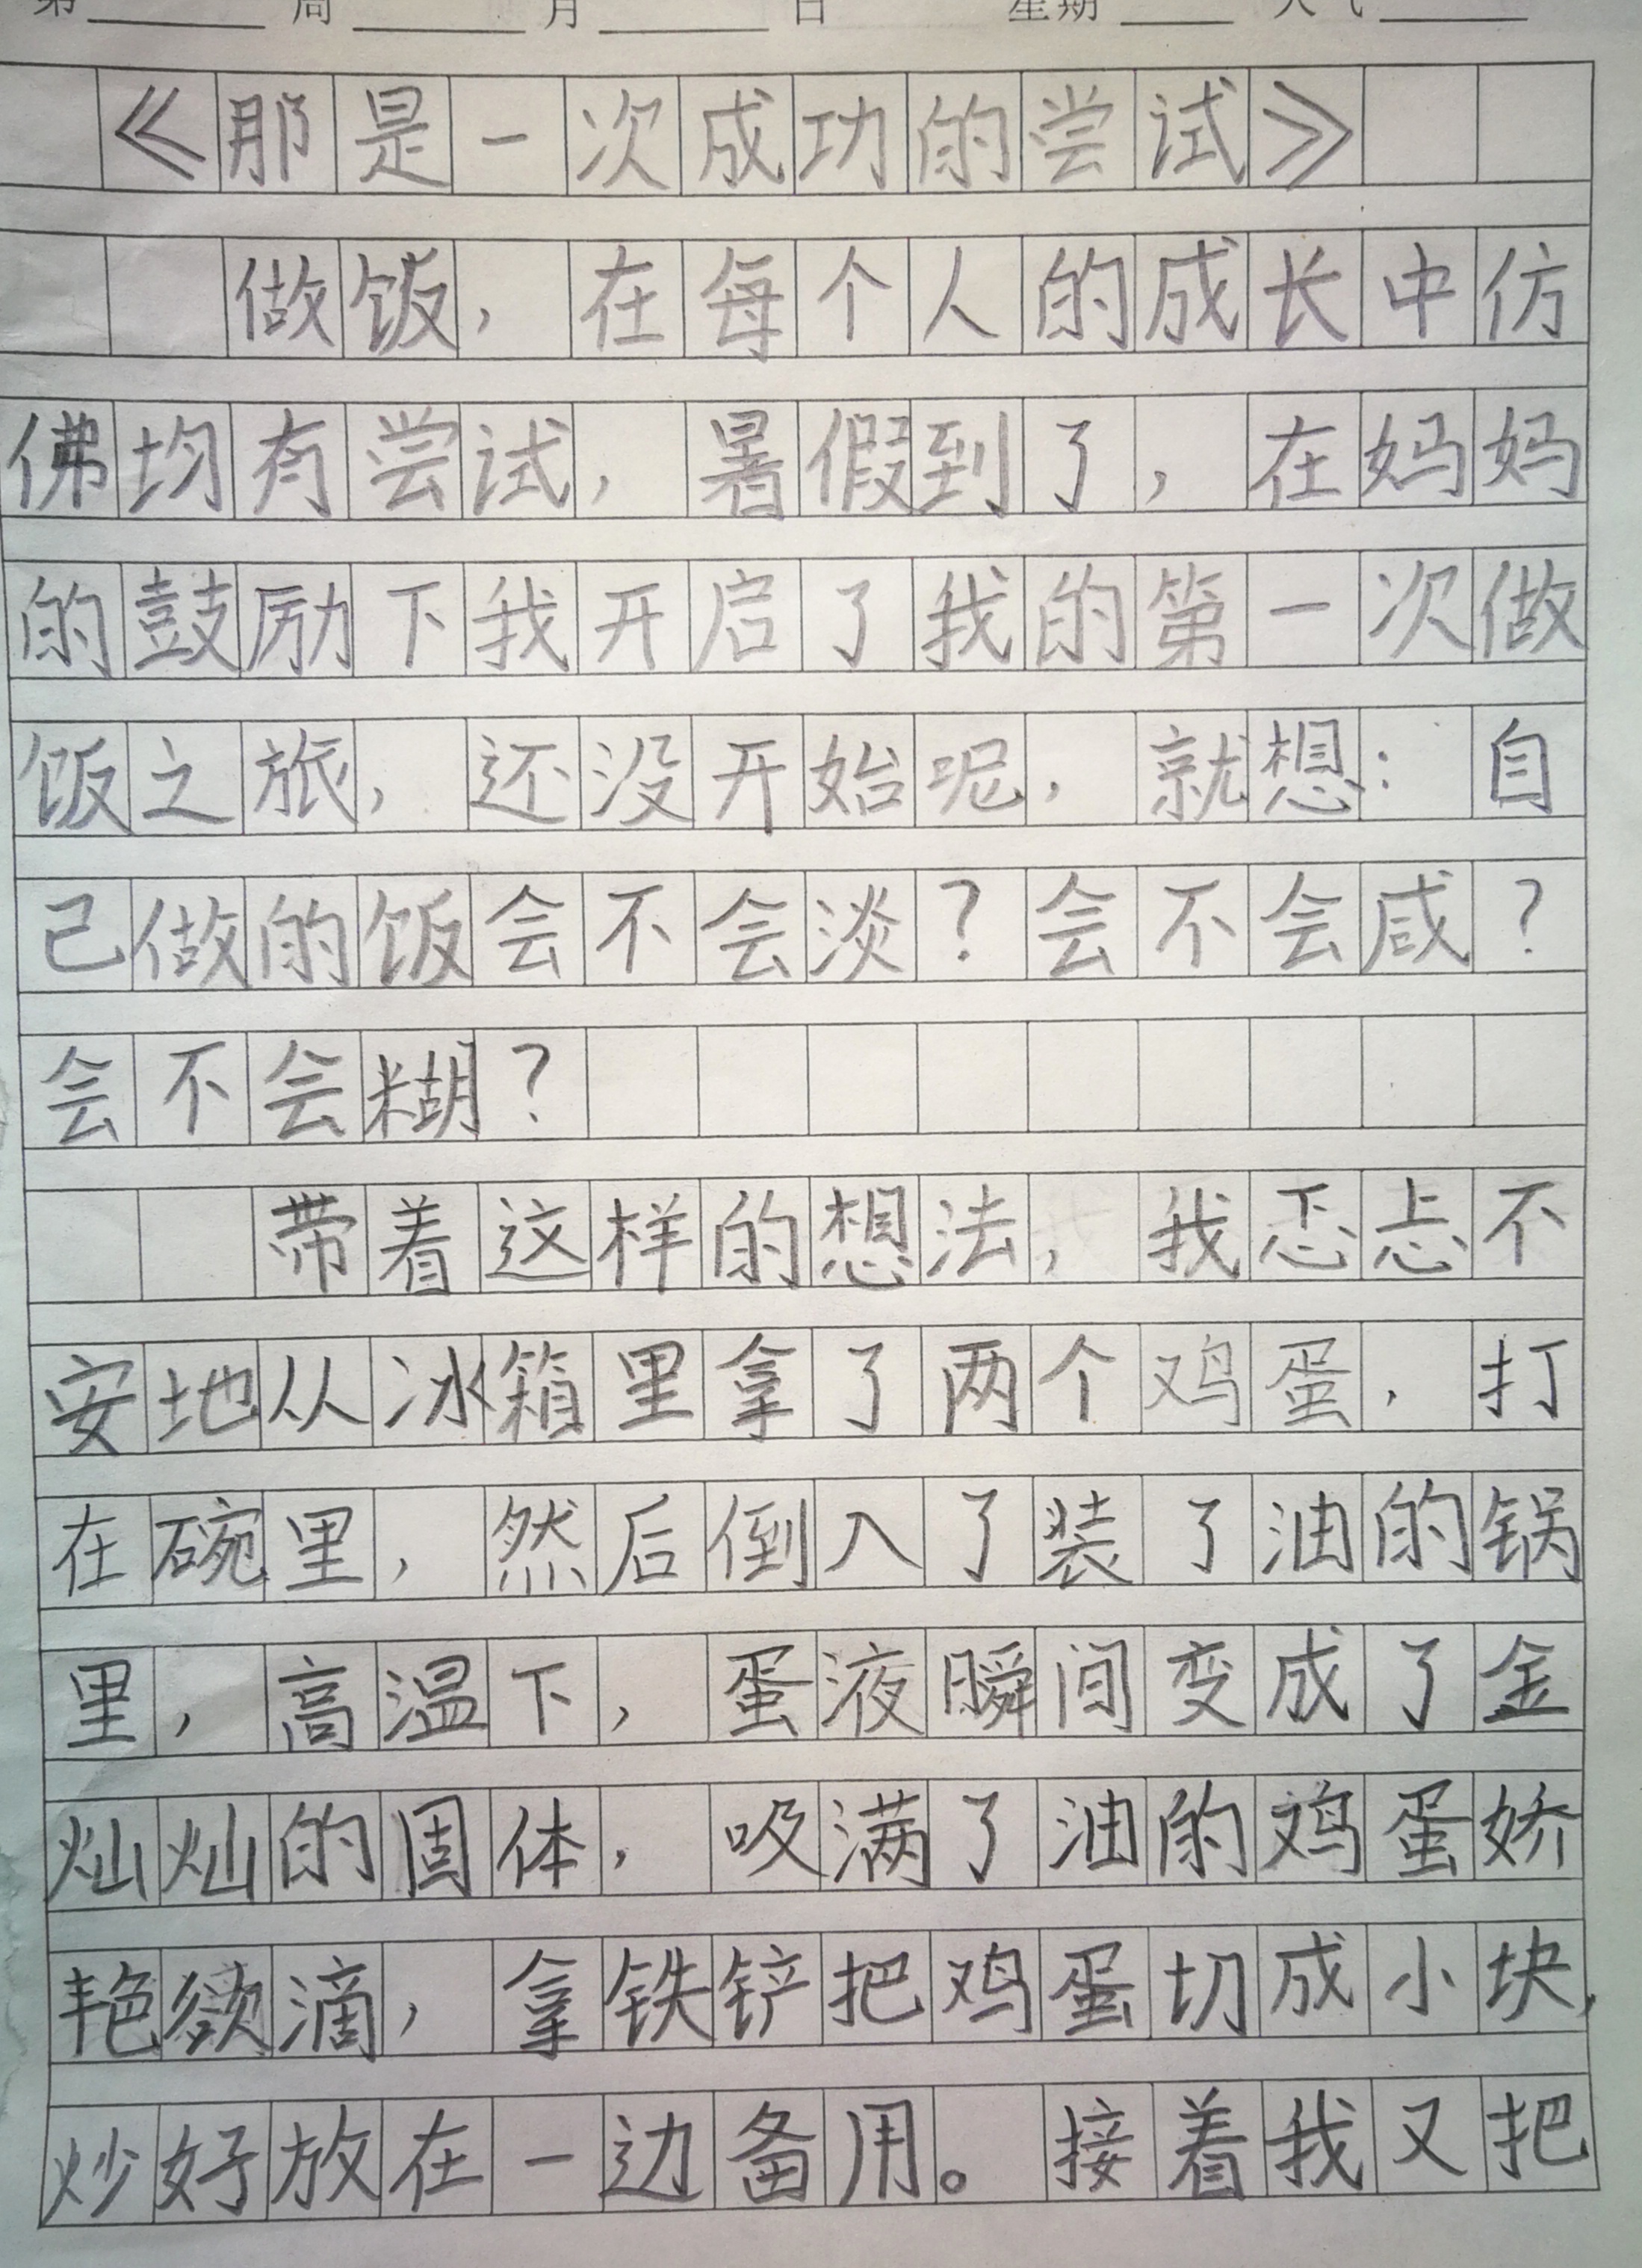 第 周 月 日 星期 天气
《那是一次成功的尝试》
做饭，在每个人的成长中仿
佛均有尝试，暑假到了，在妈妈
的鼓励下我开启了我的第一次做
饭之旅，还没开始呢，就想：自
己做的饭会不会淡？会不会咸？
会不会糊？
带着这样的想法，我忐忑不
安地从冰箱里拿了两个鸡蛋，打
在碗里，然后倒入了装了油的锅
里，高温下，蛋液瞬间变成了金
灿灿的固体，吸满了油的鸡蛋娇
艳欲滴，拿铁铲把鸡蛋切成小块，
炒好放在一边备用。接着我又把